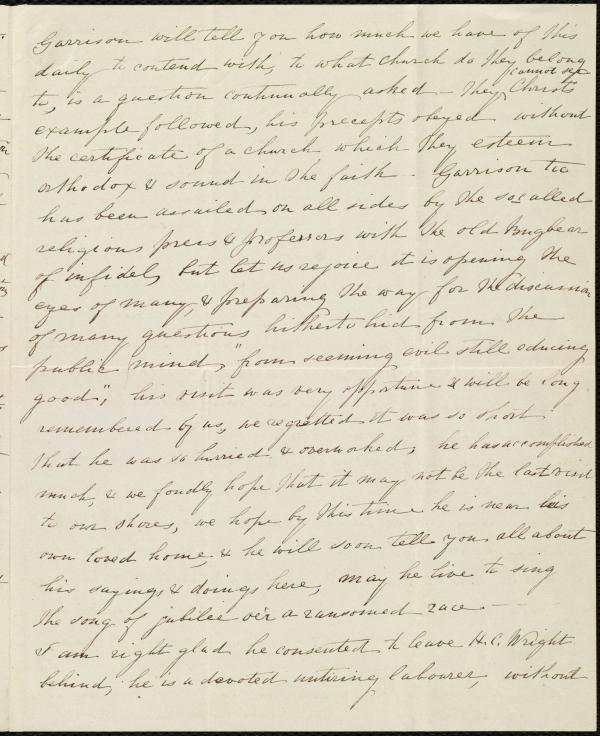 Garrison will tell you how much we have of this
daily to contend with, to what church do they belong
to, is a question continually asked - They cannot see Christs
example followed, his precepts obeyed without
the certificate of a church which they esteem
orthodox & sound in the faith - Garrison too
has been assailed on all sides by the so called
religious press & professors with the old Bugbear
of infidel, but let us rejoice it is opening the
eyes of many, & preparing the way for the discussion
of many questions hitherto hid from the
public mind, "from seeming evil still educing
good", his visit was very opportune & will be long
remembered by us, we regretted it was so short
that he was so hurried & overworked, he has accomplished
much, & we fondly hope that it may not be the last visit
to our shores, we hope by this time he is near his
own loved home, & he will soon tell you all about
his sayings & doings here, may he live to sing
the song of jubilee o'er a ransomed race -
I am right glad he consented to leave H. C. Wright
behind, he is a devoted untiring labourer, without